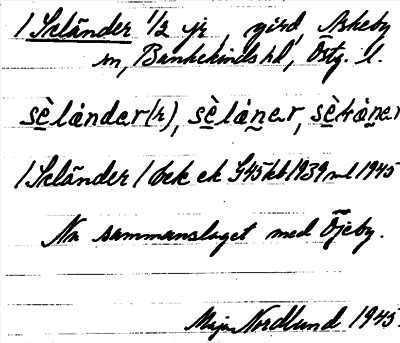 / Skländer 1/2 gård, Askeby
sn, Bankekinds hd, Östg. l.
sè̱lándar(r), sè̱láṉer, sè̱káṉer
/ Skländer / bek ek G45 hb 1939 1945
Nu sammanslaget med Öjeby.
Maja Nordlund 1945